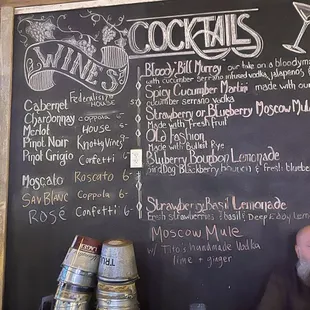 WINES
Federalist
Cabernet HOUSE 5-
Chardonnay Coppola
Merlot HOUSE 5-
Pinot Noir Knotty Vines
Pinot Grigio Confetti
Moscato Roscato 6-
SAV BLANC Coppola 6-
ROSÉ Confetti 6-
COCKTAILS
Bloody Bill Murray our take on a bloody
with cucumber Serrano infused vodka, jalapenos &
Spicy Cucumber Martini made with our
cucumber serrano vodka
Strawberry or Blueberry Moscow Mule
Made with fresh fruit
Old Fashion
Made with Bulleit Rye
Bluberry Bourbon Lemonade
Red Dog Blackberry Bourbon & fresh blueber
Strawberry Basil Lemonade
Fresh strawberries & basil & Deep Eddy lemo
MOSCOW MULE
w/ Tito's handmade vodka
lime + ginger